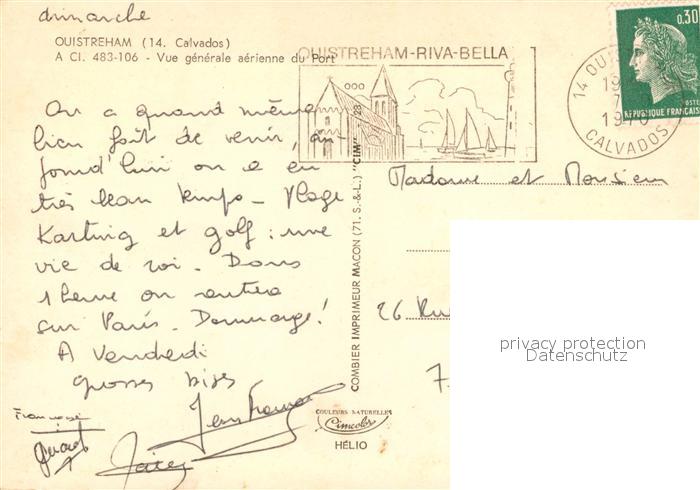 dimanche
OUISTREHAM (14. Calvados)
A CI. 483-106 - Vue générale aérienne du Port
OUISTREHAM-RIVA-BELLA
0,30
POSTES
REPUBLIQUE FRANÇAISE
14 OUI
19
7
1970
CALVADOS
On a quand même
bien fait de venir, au-
jourd'hui on a eu
très beau temps - Plage
Karting et golf : une
vie de roi. Dans
1 heure on rentre
sur Paris. Dommage!
A Vendredi
grosses bises
Jean François
Françoise
COMBIER IMPRIMEUR MACON (71. S.-&-L.) "CIM"
COULEURS NATURELLES
Cimcolor
HÉLIO
Madame et Monsieur
26 Rue
7
privacy protection
Datenschutz